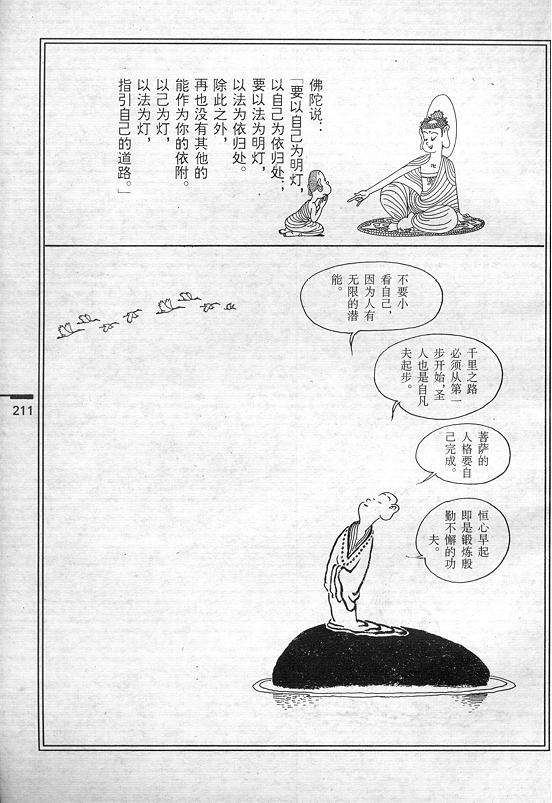 佛陀说：
「要以自己为明灯，
以自己为依归处；
要以法为明灯，
以法为依归处。
除此之外，
再也没有其他的
能作为你的依附。
以己为灯，
以法为灯，
指引自己的道路。」
不要小
看自己，
因为人有
无限的潜
能。
千里之路
必须从第一
步开始，圣
人也是自凡
夫起步。
菩萨的
人格要自
己完成。
恒心早起
即是锻炼殷
勤不懈的功
夫。
211